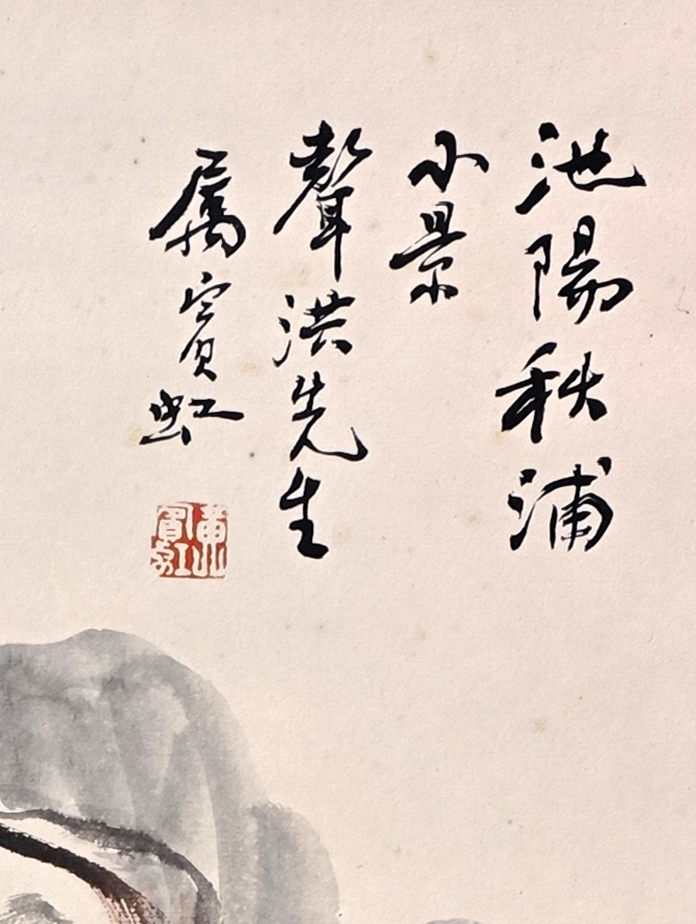 池陽秋浦
小景
聲洪先生
属賓虹
黃山
賓虹